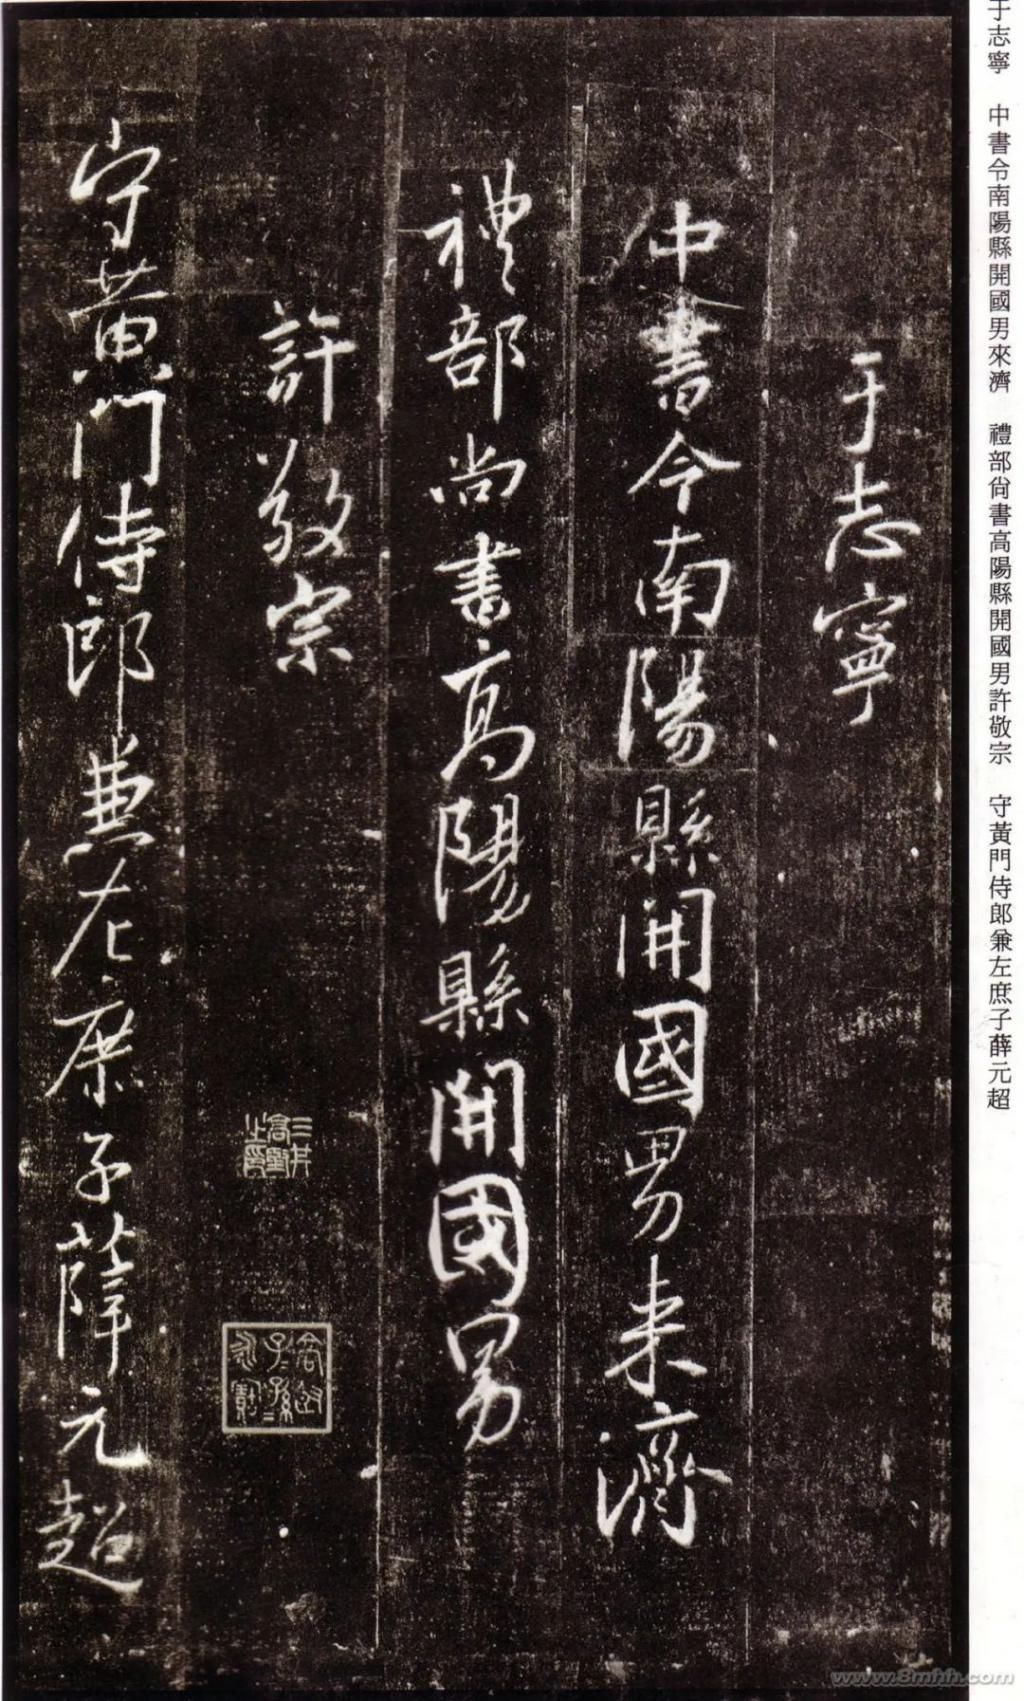 于志寧　中書令南陽縣開國男來濟　禮部尙書高陽縣開國男許敬宗　守黃門侍郎兼左庶子薛元超
于志寧
中書令南陽縣開國男来濟
禮部尚書髙陽縣開國男
許敬宗
守黄門侍郎兼左庶子薛元超
子子孫孫
www.8mhh.com